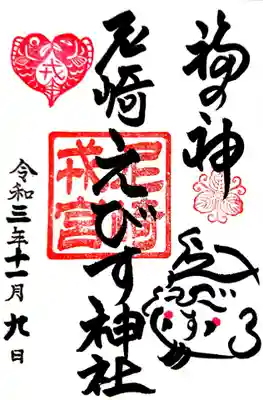 福の神
尼崎えびす神社
令和三年十一月九日
戎
尼崎
戎宮
えびす